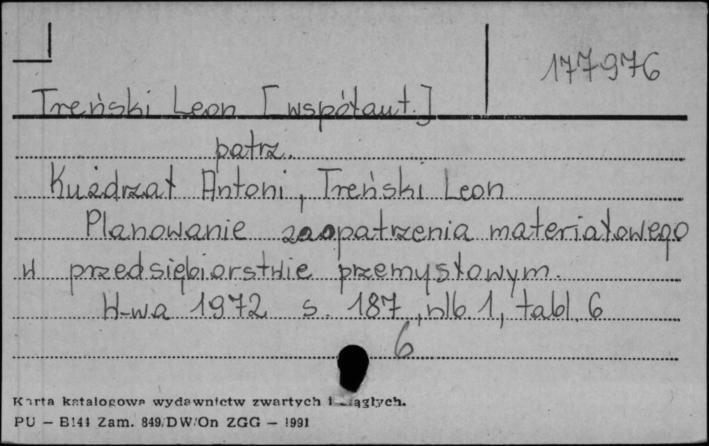 177976
Treński Leon [współaut.]
patrz.
Kuźdrzał Antoni, Treński Leon
Planowanie zaopatrzenia materiałowego
w przedsiębiorstwie przemysłowym.
W-wa 1972 s. 187, nlb 1, tabl. 6
6
Karta katalogowa wydawnictw zwartych i ciągłych.
PU – B144 Zam. 849/DW/On ZGG – 1991